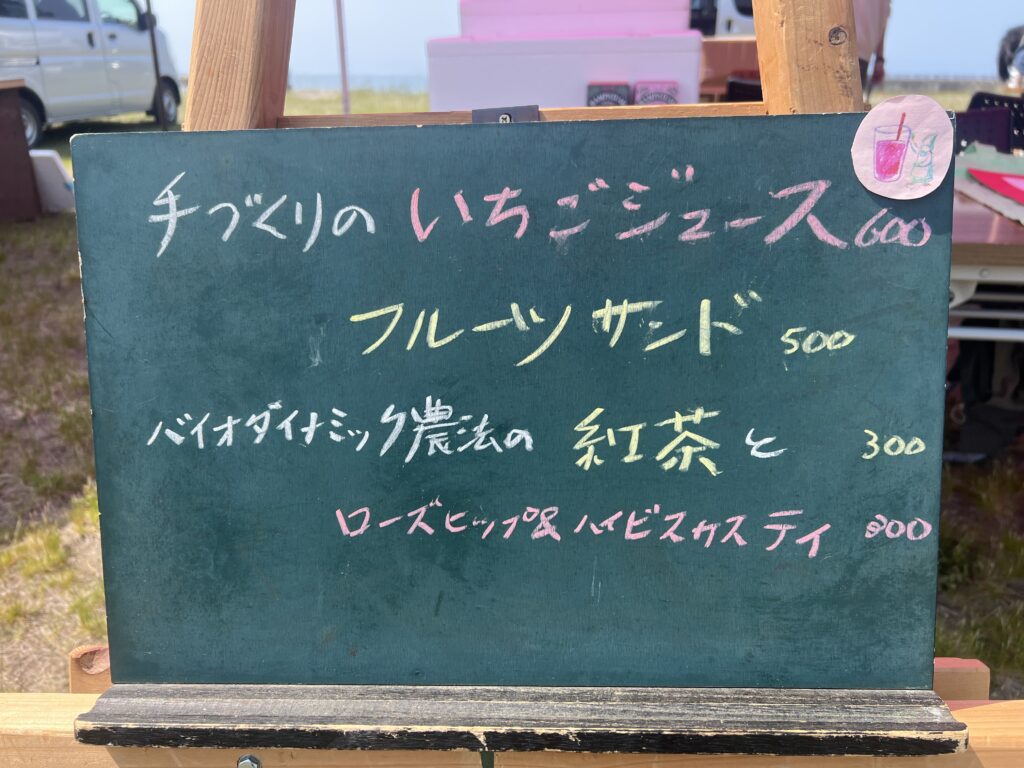 手づくりの いちごジュース 600
フルーツサンド 500
バイオダイナミック農法の 紅茶と 300
ローズヒップ&ハイビスカス ティ